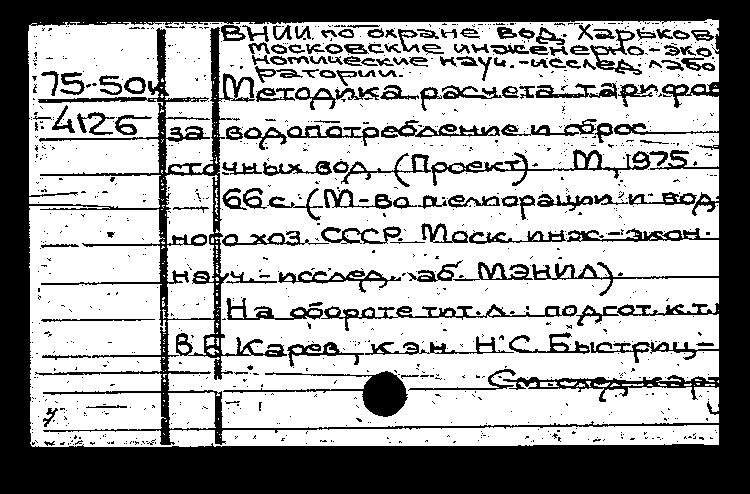 ВНИИ по охране вод. Харьков,
Московские инженерно-эко
номические науч.-исслед. лабо
ратории.
75-50к Методика расчета тарифов
4126 за водопотребление и сброс
сточных вод. (Проект). М., 1975.
66 с. (М-во мелиорации и вод-
ного хоз. СССР. Моск. инж.-экон.
науч.-исслед. лаб. МЭНИЛ).
На обороте тит. л.: подгот. к.т.н
В.Б Карев, к.э.н. Н.С. Быстриц-
См след карт